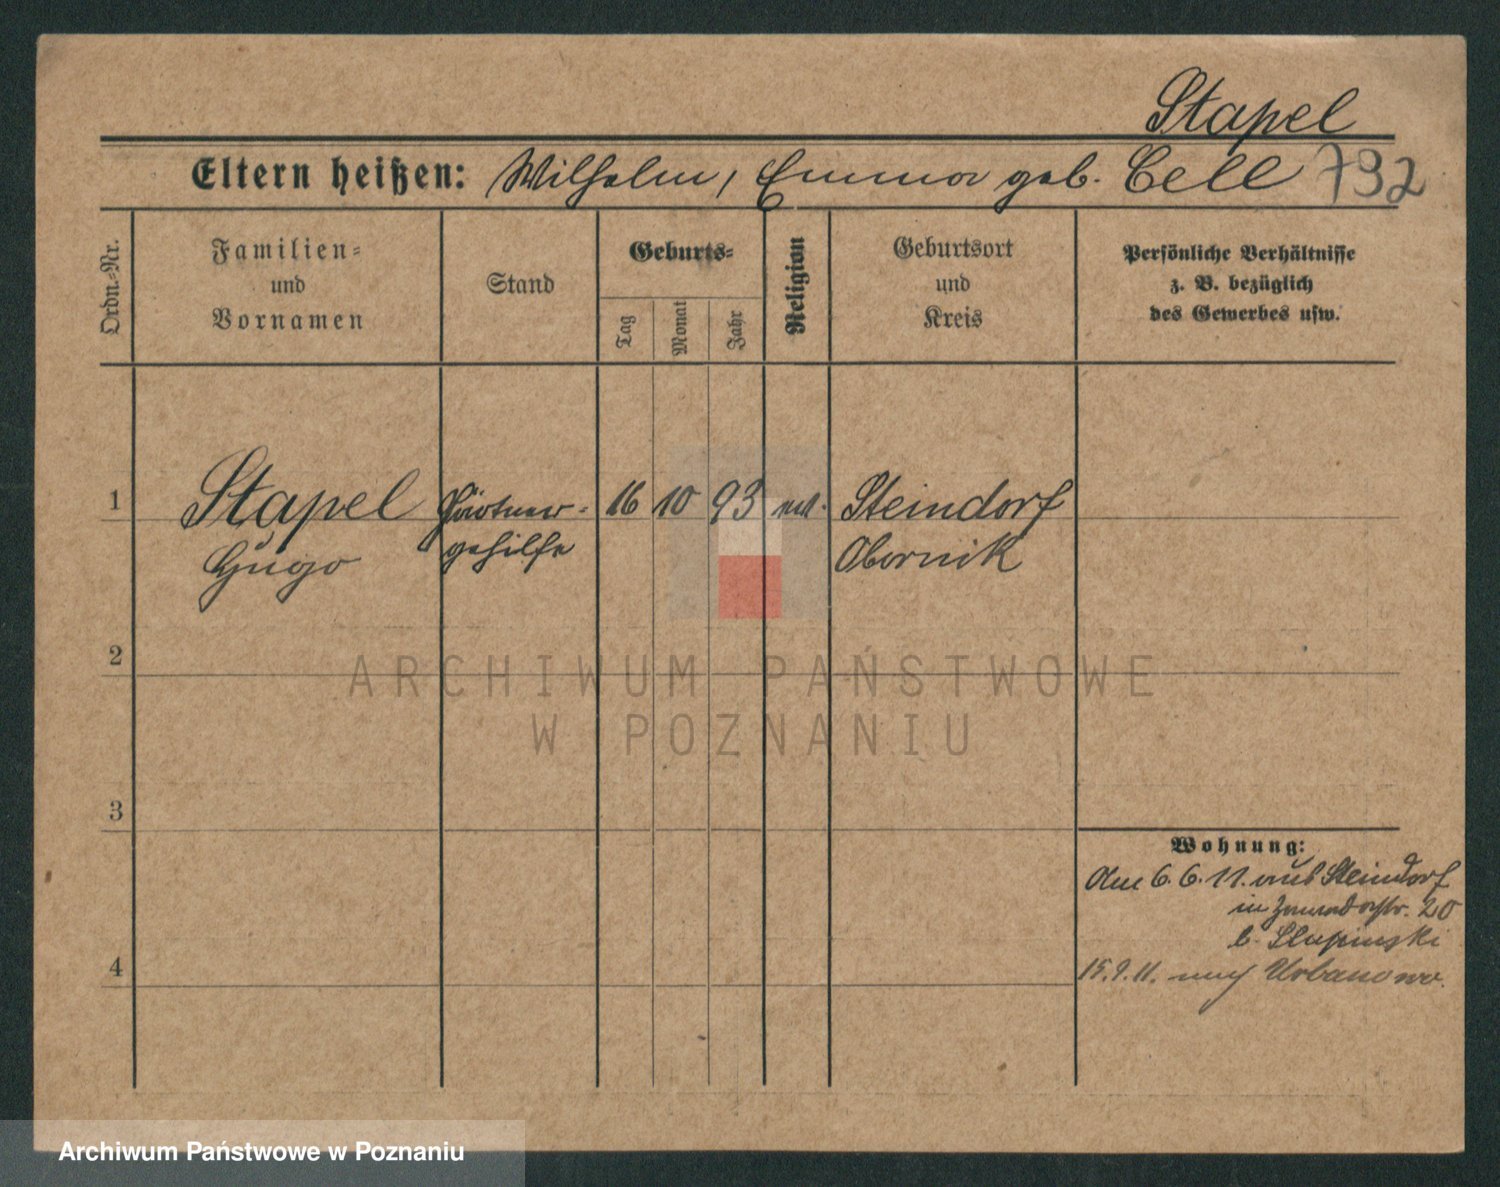 Stapel
Eltern heißen: Wilhelm, Emma geb. Cell 792
Ordn.-Nr.
Familien-
und
Vornamen
Stand
Geburts-
Tag
Monat
Jahr
Religion
Geburtsort
und
Kreis
Persönliche Verhältnisse
z. B. bezüglich
des Gewerbes usw.
1 Stapel Gärtner- 16 10 93 Steindorf
Hugo gehilfe Obornik
2
3
4
Wohnung:
Am 6.6.11. aus Steindorf
in 20
b.
15.9.11. nach Urbanowo.
ARCHIWUM PAŃSTWOWE
W POZNANIU
Archiwum Państwowe w Poznaniu